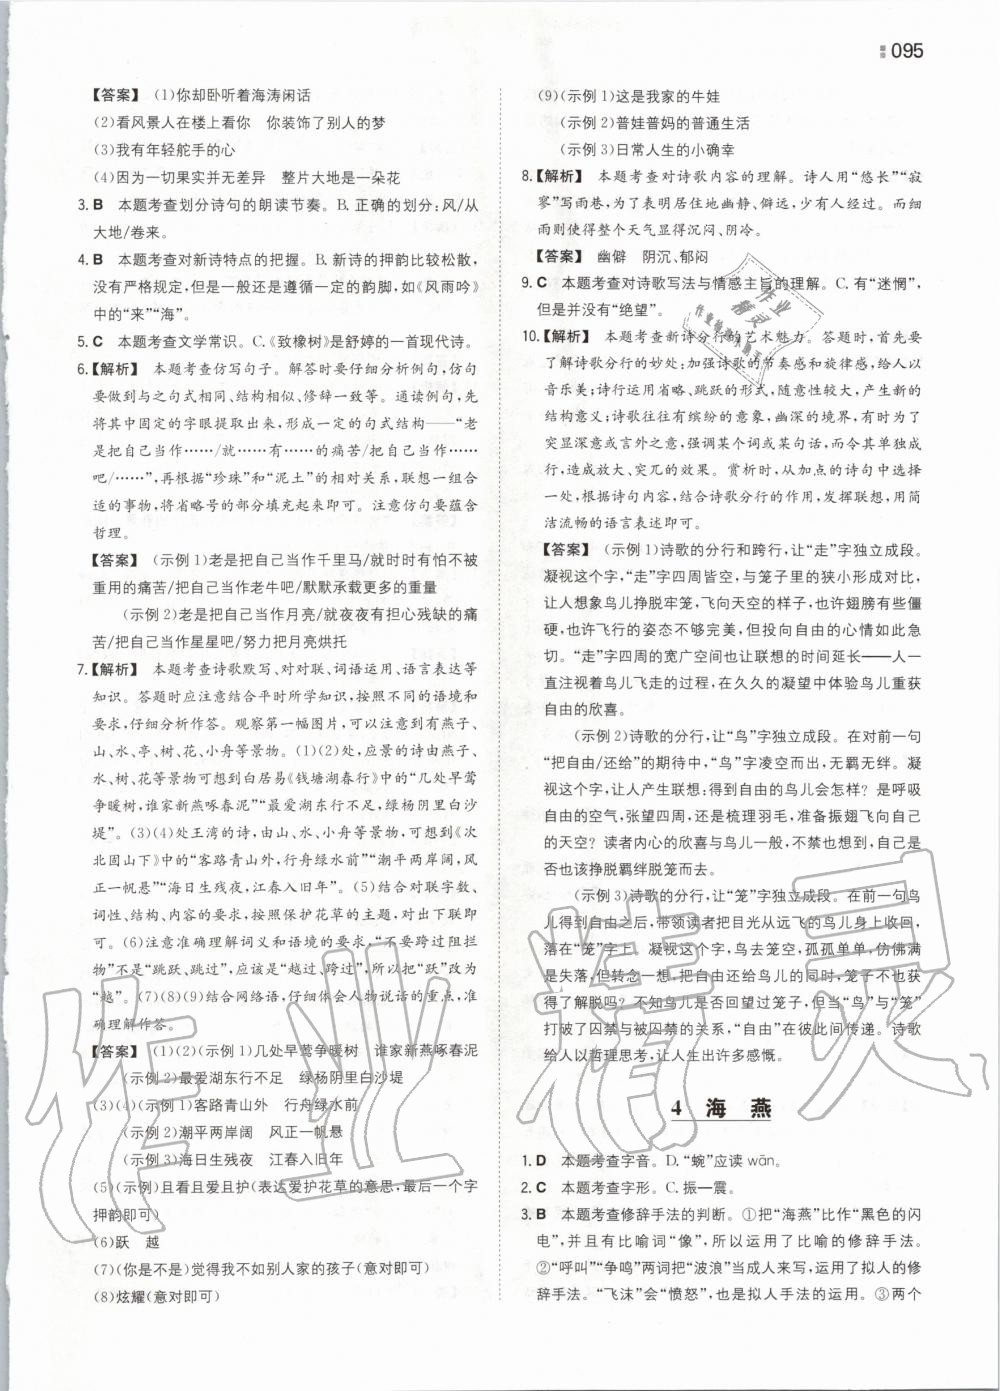 095
【答案】 (1)你却卧听着海涛闲话
(2)看风景人在楼上看你 你装饰了别人的梦
(3)我有年轻舵手的心
(4)因为一切果实并无差异 整片大地是一朵花
3. B 本题考查划分诗句的朗读节奏。B. 正确的划分:风/从
大地/卷来。
4. B 本题考查对新诗特点的把握。B. 新诗的押韵比较松散,
没有严格规定,但是一般还是遵循一定的韵脚,如《风雨吟》
中的“来”“海”。
5. C 本题考查文学常识。C.《致橡树》是舒婷的一首现代诗。
6.【解析】 本题考查仿写句子。解答时要仔细分析例句,仿句
要做到与之句式相同、结构相似、修辞一致等。通读例句,先
将其中固定的字眼提取出来,形成一定的句式结构——“老
是把自己当作……/就……有……的痛苦/把自己当作……
吧/……”,再根据“珍珠”和“泥土”的关系,联想一组合
适的事物,将省略号的部分填充起来即可。注意仿句要蕴含
哲理。
【答案】 (示例1)老是把自己当作千里马/就时时有怕不被
重用的痛苦/把自己当作老牛吧/默默承载更多的重量
(示例2)老是把自己当作月亮/就夜夜有担心残缺的痛
苦/把自己当作星星吧/努力把月亮烘托
7.【解析】 本题考查诗歌默写、对对联、词语运用、语言表达等
知识。答题时应注意结合平时所学知识,按照不同的语境和
要求,仔细分析作答。观察第一幅图片,可以注意到有燕子、
山、水、亭、树、花、小舟等景物。(1)(2)处,应景的诗由燕子、
水、树、花等景物可想到白居易《钱塘湖春行》中的“几处早莺
争暖树,谁家新燕啄春泥”“最爱湖东行不足,绿杨阴里白沙
堤”。(3)(4)处王湾的诗,由山、水、小舟等景物,可想到《次
北固山下》中的“客路青山外,行舟绿水前”“潮平两岸阔,风
正一帆悬”“海日生残夜,江春入旧年”。(5)结合对联字数、
词性、结构、内容的要求,按照保护花草的主题,对出下联即
可。(6)注意准确理解词义和语境的要求,“不要跨过阻拦
物”不是“跳跃、跳过”,应该是“越过、跨过”,所以把“跃”改为
“越”。(7)(8)(9)结合网络语,仔细体会人物说话的重点,准
确理解作答。
【答案】 (1)(2)(示例1)几处早莺争暖树 谁家新燕啄春泥
(示例2)最爱湖东行不足 绿杨阴里白沙堤
(3)(4)(示例1)客路青山外 行舟绿水前
(示例2)潮平两岸阔 风正一帆悬
(示例3)海日生残夜 江春入旧年
(5)(示例)且看且爱且护(表达爱护花草的意思,最后一个字
押韵即可)
(6)跃 越
(7)(你是不是)觉得我不如别人家的孩子(意对即可)
(8)炫耀(意对即可)
(9)(示例1)这是我家的牛娃
(示例2)普娃普妈的普通生活
(示例3)日常人生的小确幸
8.【解析】 本题考查对诗歌内容的理解。诗人用“悠长”“寂
寥”写雨巷,是为了表明居住地幽静、僻远,少有人经过。而细
雨则使得整个天气显得沉闷、阴冷。
【答案】 幽僻 阴沉、郁闷
9. C 本题考查对诗歌写法与情感主旨的理解。C. 有“迷惘”,
但是并没有“绝望”。
10.【解析】 本题考查新诗分行的艺术魅力。答题时,首先要
了解诗歌分行的妙处:加强诗歌的节奏感和旋律感,给人以
音乐美;诗行运用省略、跳跃的形式,随意性较大,产生新的
结构意义;诗歌往往有缤纷的意象,幽深的境界,有时为了
突显深意或言外之意,强调某个词或某句话,而令其单独成
行,造成放大、突兀的效果。赏析时,从给出的诗句中选择
一处,根据诗句内容,结合诗歌分行的作用,发挥联想,用简
洁流畅的语言表述即可。
【答案】 (示例1)诗歌的分行和跨行,让“走”字独立成段。
凝视这个字,“走”字四周皆空,与笼子里的狭小形成对比,
让人想象鸟儿挣脱牢笼,飞向天空的样子,也许翅膀有些僵
硬,也许飞行的姿态不够完美,但投向自由的心情如此高
昂。“走”字四周的宽广空间也让联想的时间延长——人一
直注视着鸟儿飞走的过程,在久久的凝望中体验鸟儿重获
自由的欣喜。
(示例2)诗歌的分行,让“鸟”字独立成段。在前一句
“把自由/还给”的期待中,“鸟”字凌空而出,无羁无绊。凝
视这个字,让人产生联想:得到自由的鸟儿会怎样? 是呼吸
自由的空气,张望四周,还是梳理羽毛,准备振翅飞向自己
的天空? 读者内心的欣喜与鸟儿一般,不禁也想到,自己是
否也该挣脱羁绊脱笼而去。
(示例3)诗歌的分行,让“笼”字独立成段。在前一句鸟
儿得到自由之后,带领读者把目光从远飞的鸟儿身上收回,
落在“笼”字上。凝视这个字,鸟去笼空,孤孤单单,仿佛满
是失落,但转念一想,把自由还给鸟儿的同时,笼子不也获
得了解脱吗? 不知鸟儿是否回望过笼子,但当“鸟”与“笼”
打破了囚禁与被囚禁的关系,“自由”在彼此间传递。诗歌
给人以哲理思考,让人生出许多感慨。
4 海 燕
1. D 本题考查字音。D.“蜿”应读 wān。
2. C 本题考查字形。C. 振—震。
3. B 本题考查修辞手法的判断。①把“海燕”比作“黑色的闪
电”,并且有比喻词“像”,所以运用了比喻的修辞手法。
②“呼叫”“争鸣”两词把“波浪”当成人来写,运用了拟人的修
辞手法。“飞沫”会“愤怒”,也是拟人手法的运用。③两个
作业精灵
作业
精灵